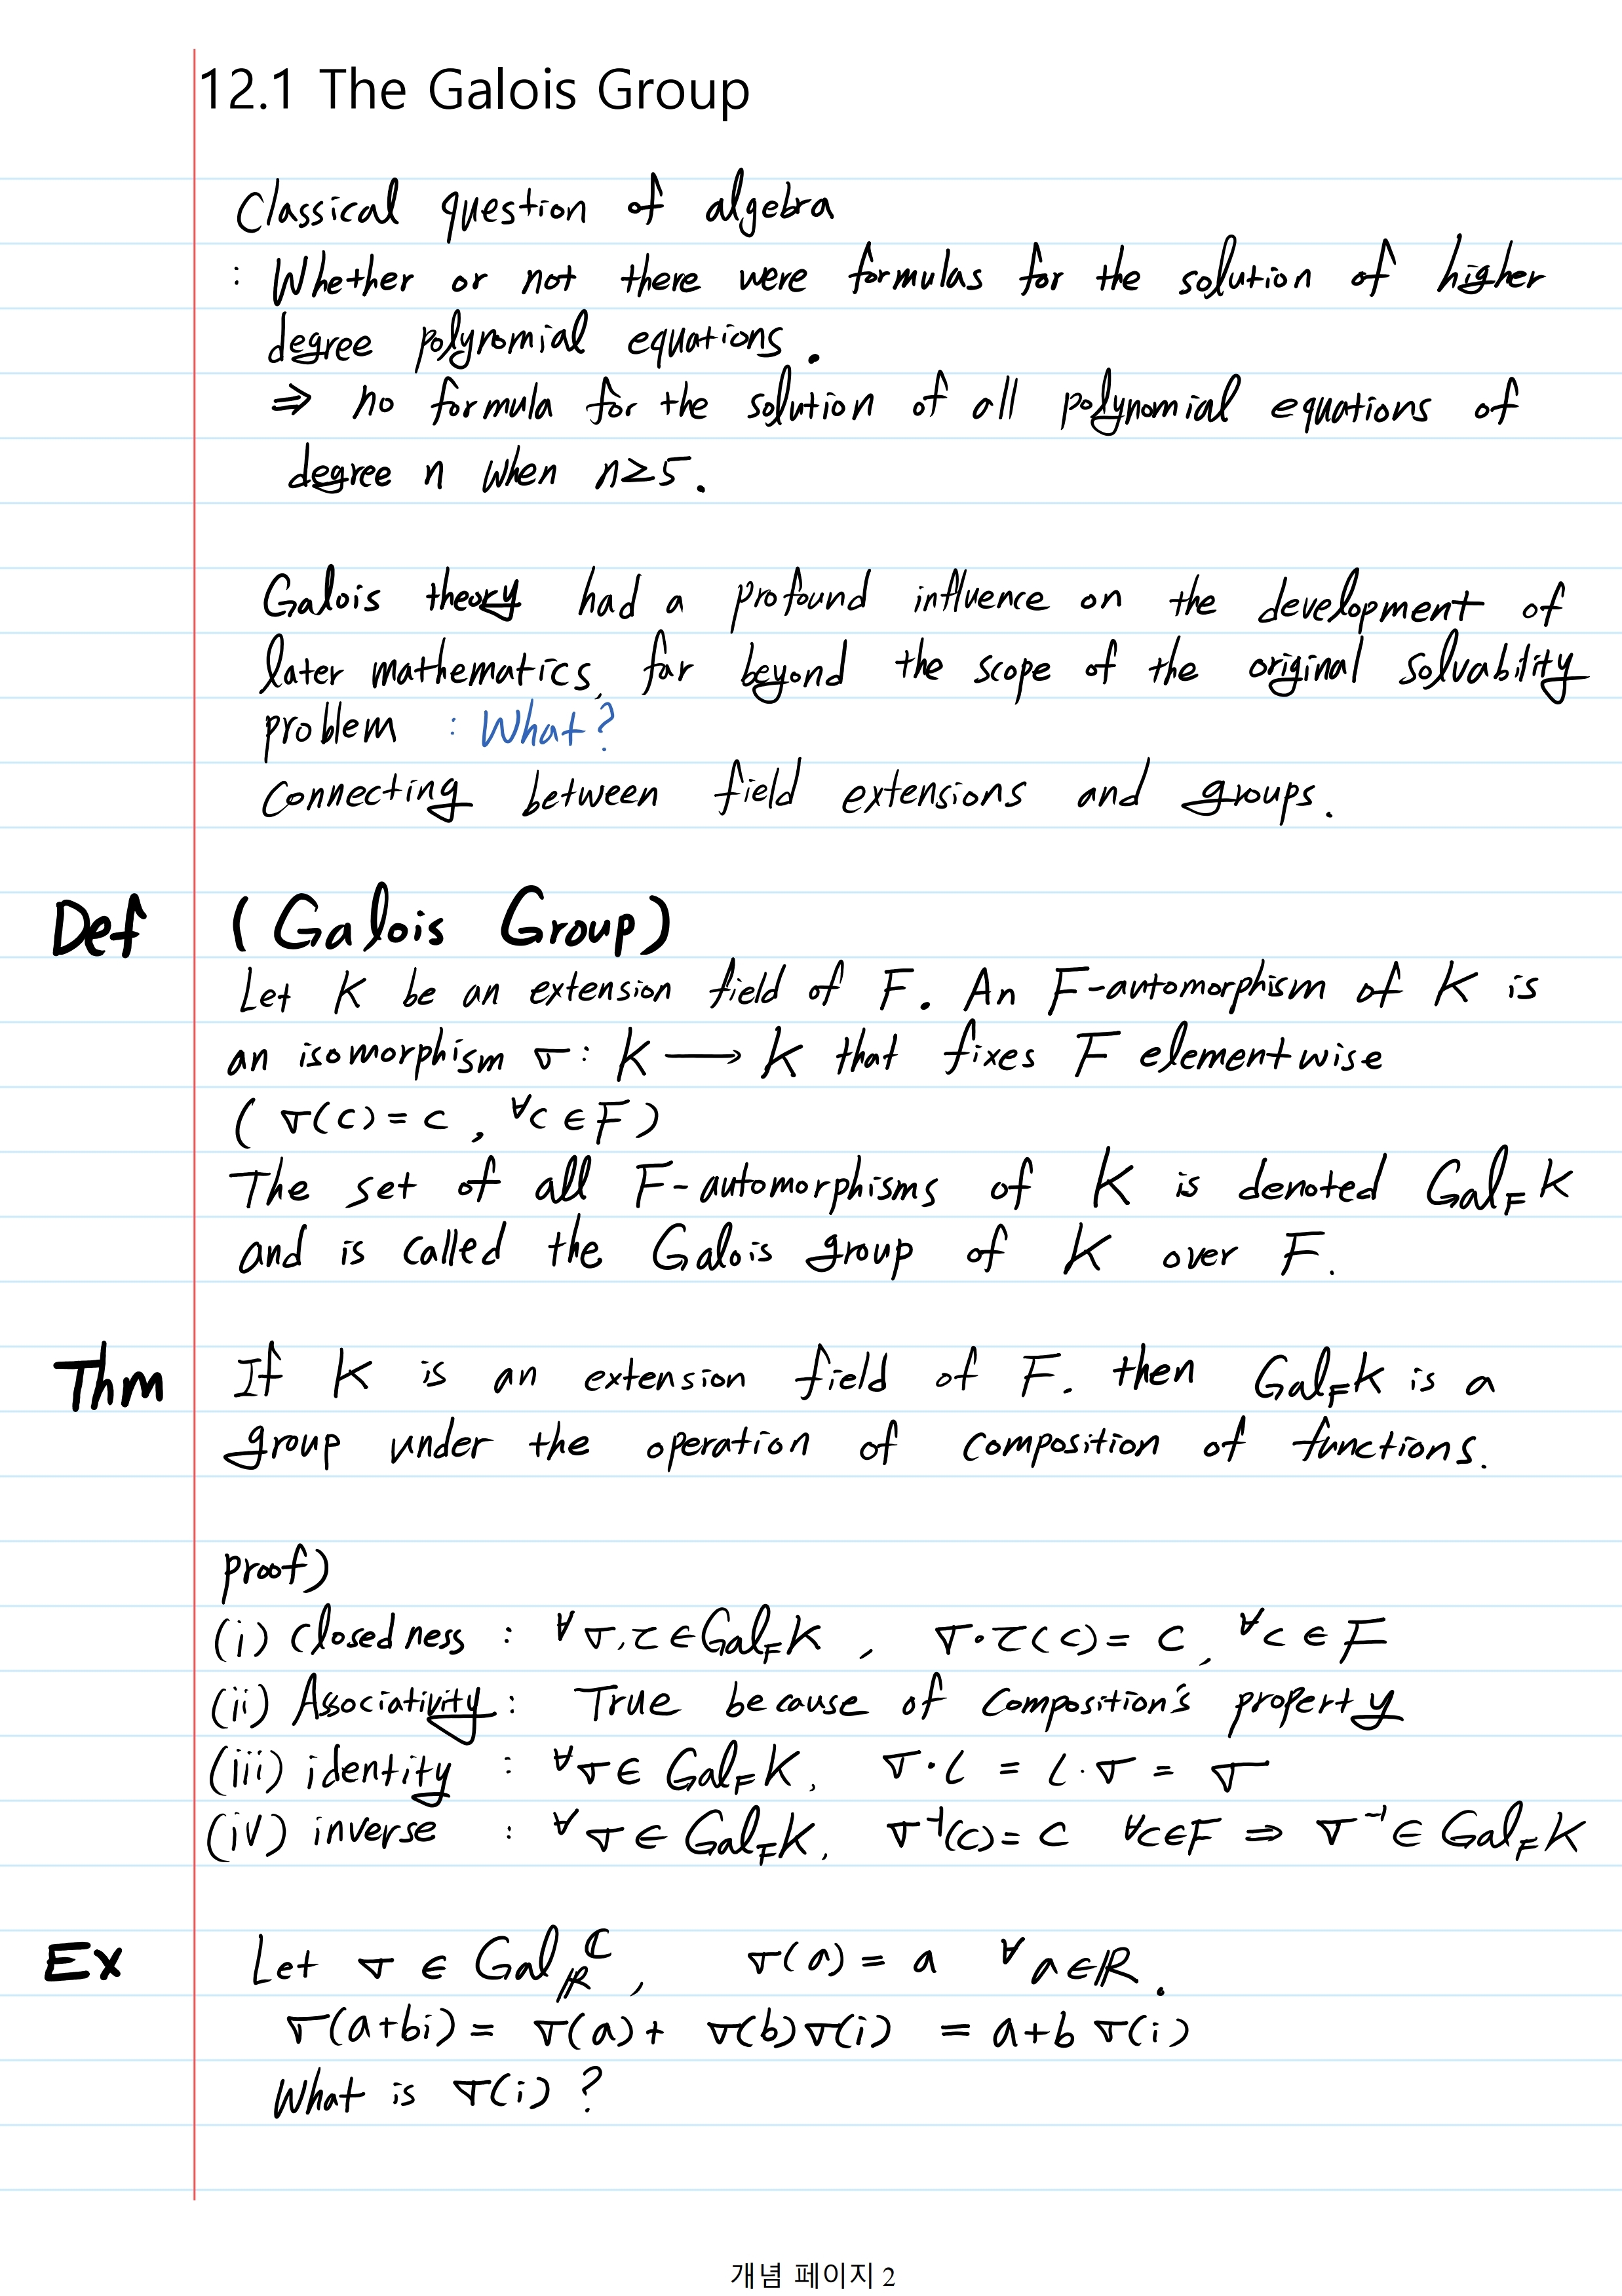 12.1 The Galois Group
Classical question of algebra
: Whether or not there were formulas for the solution of higher
degree polynomial equations.
⇒ no formula for the solution of all polynomial equations of
degree n when n≥5.
Galois theory had a profound influence on the development of
later mathematics, far beyond the scope of the original solvability
problem : What?
Connecting between field extensions and groups.
Def (Galois Group)
Let K be an extension field of F. An F-automorphism of K is
an isomorphism σ: K ⟶ K that fixes F elementwise
( σ(c) = c , ∀c ∈ F )
The set of all F-automorphisms of K is denoted Gal_F K
and is called the Galois group of K over F.
Thm If K is an extension field of F. then Gal_F K is a
group under the operation of composition of functions.
proof)
(i) closedness : ∀σ, τ ∈ Gal_F K , σ·τ(c) = c, ∀c ∈ F
(ii) Associativity : True because of composition's property
(iii) identity : ∀σ ∈ Gal_F K, σ·ι = ι·σ = σ
(iv) inverse : ∀σ ∈ Gal_F K, σ⁻¹(c) = c ∀c∈F ⇒ σ⁻¹ ∈ Gal_F K
Ex Let σ ∈ Gal_ℝ ℂ, σ(a) = a ∀a∈ℝ.
σ(a+bi) = σ(a) + σ(b)σ(i) = a+b σ(i)
What is σ(i) ?
개념 페이지 2